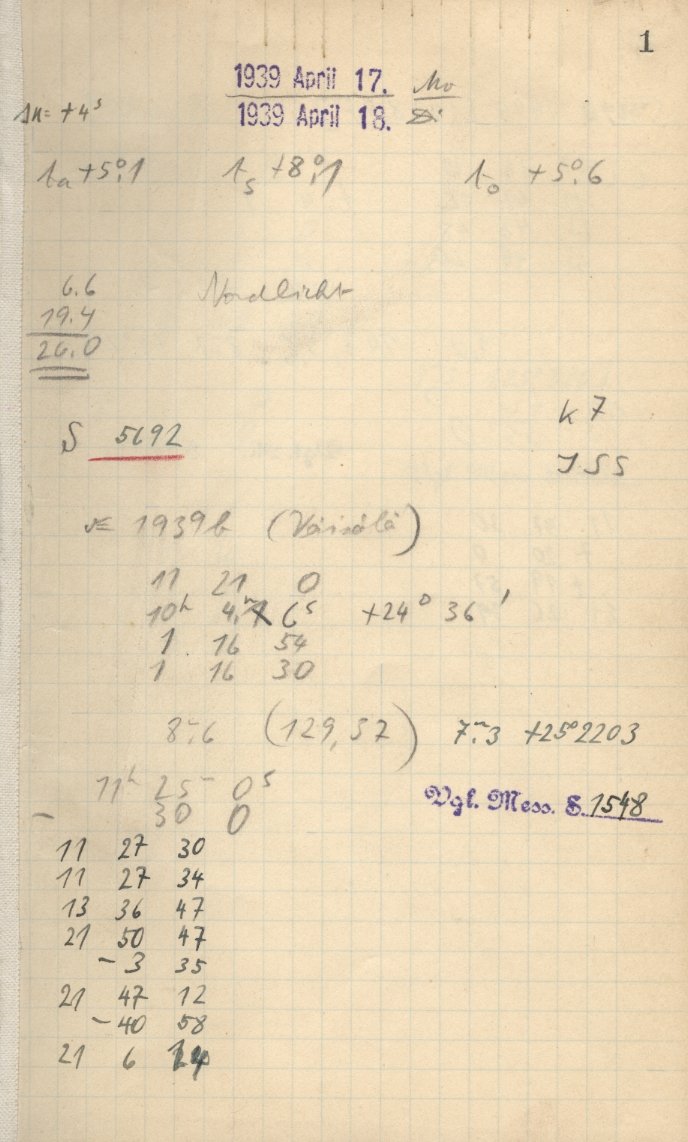 1
1939 April 17. Mo
Δu = +4ˢ
1939 April 18. Di
tₐ +5°.1 tₛ +8°.1 tₒ +5°.6
6.6 Nordlicht
19.4
26.0
K 7
S 5692
JSS
1939b (Väisälä)
11 21 0
10ʰ 4.ᵐ 6ˢ +24° 36'
1 16 54
1 16 30
8ᵐ.6 (129,57) 7ᵐ.3 +25°2203
11ʰ 25ᵐ 0ˢ
Vgl. Mess. S. 1548
− 30 0
11 27 30
11 27 34
13 36 47
21 50 47
−3 35
21 47 12
−40 58
21 6 14